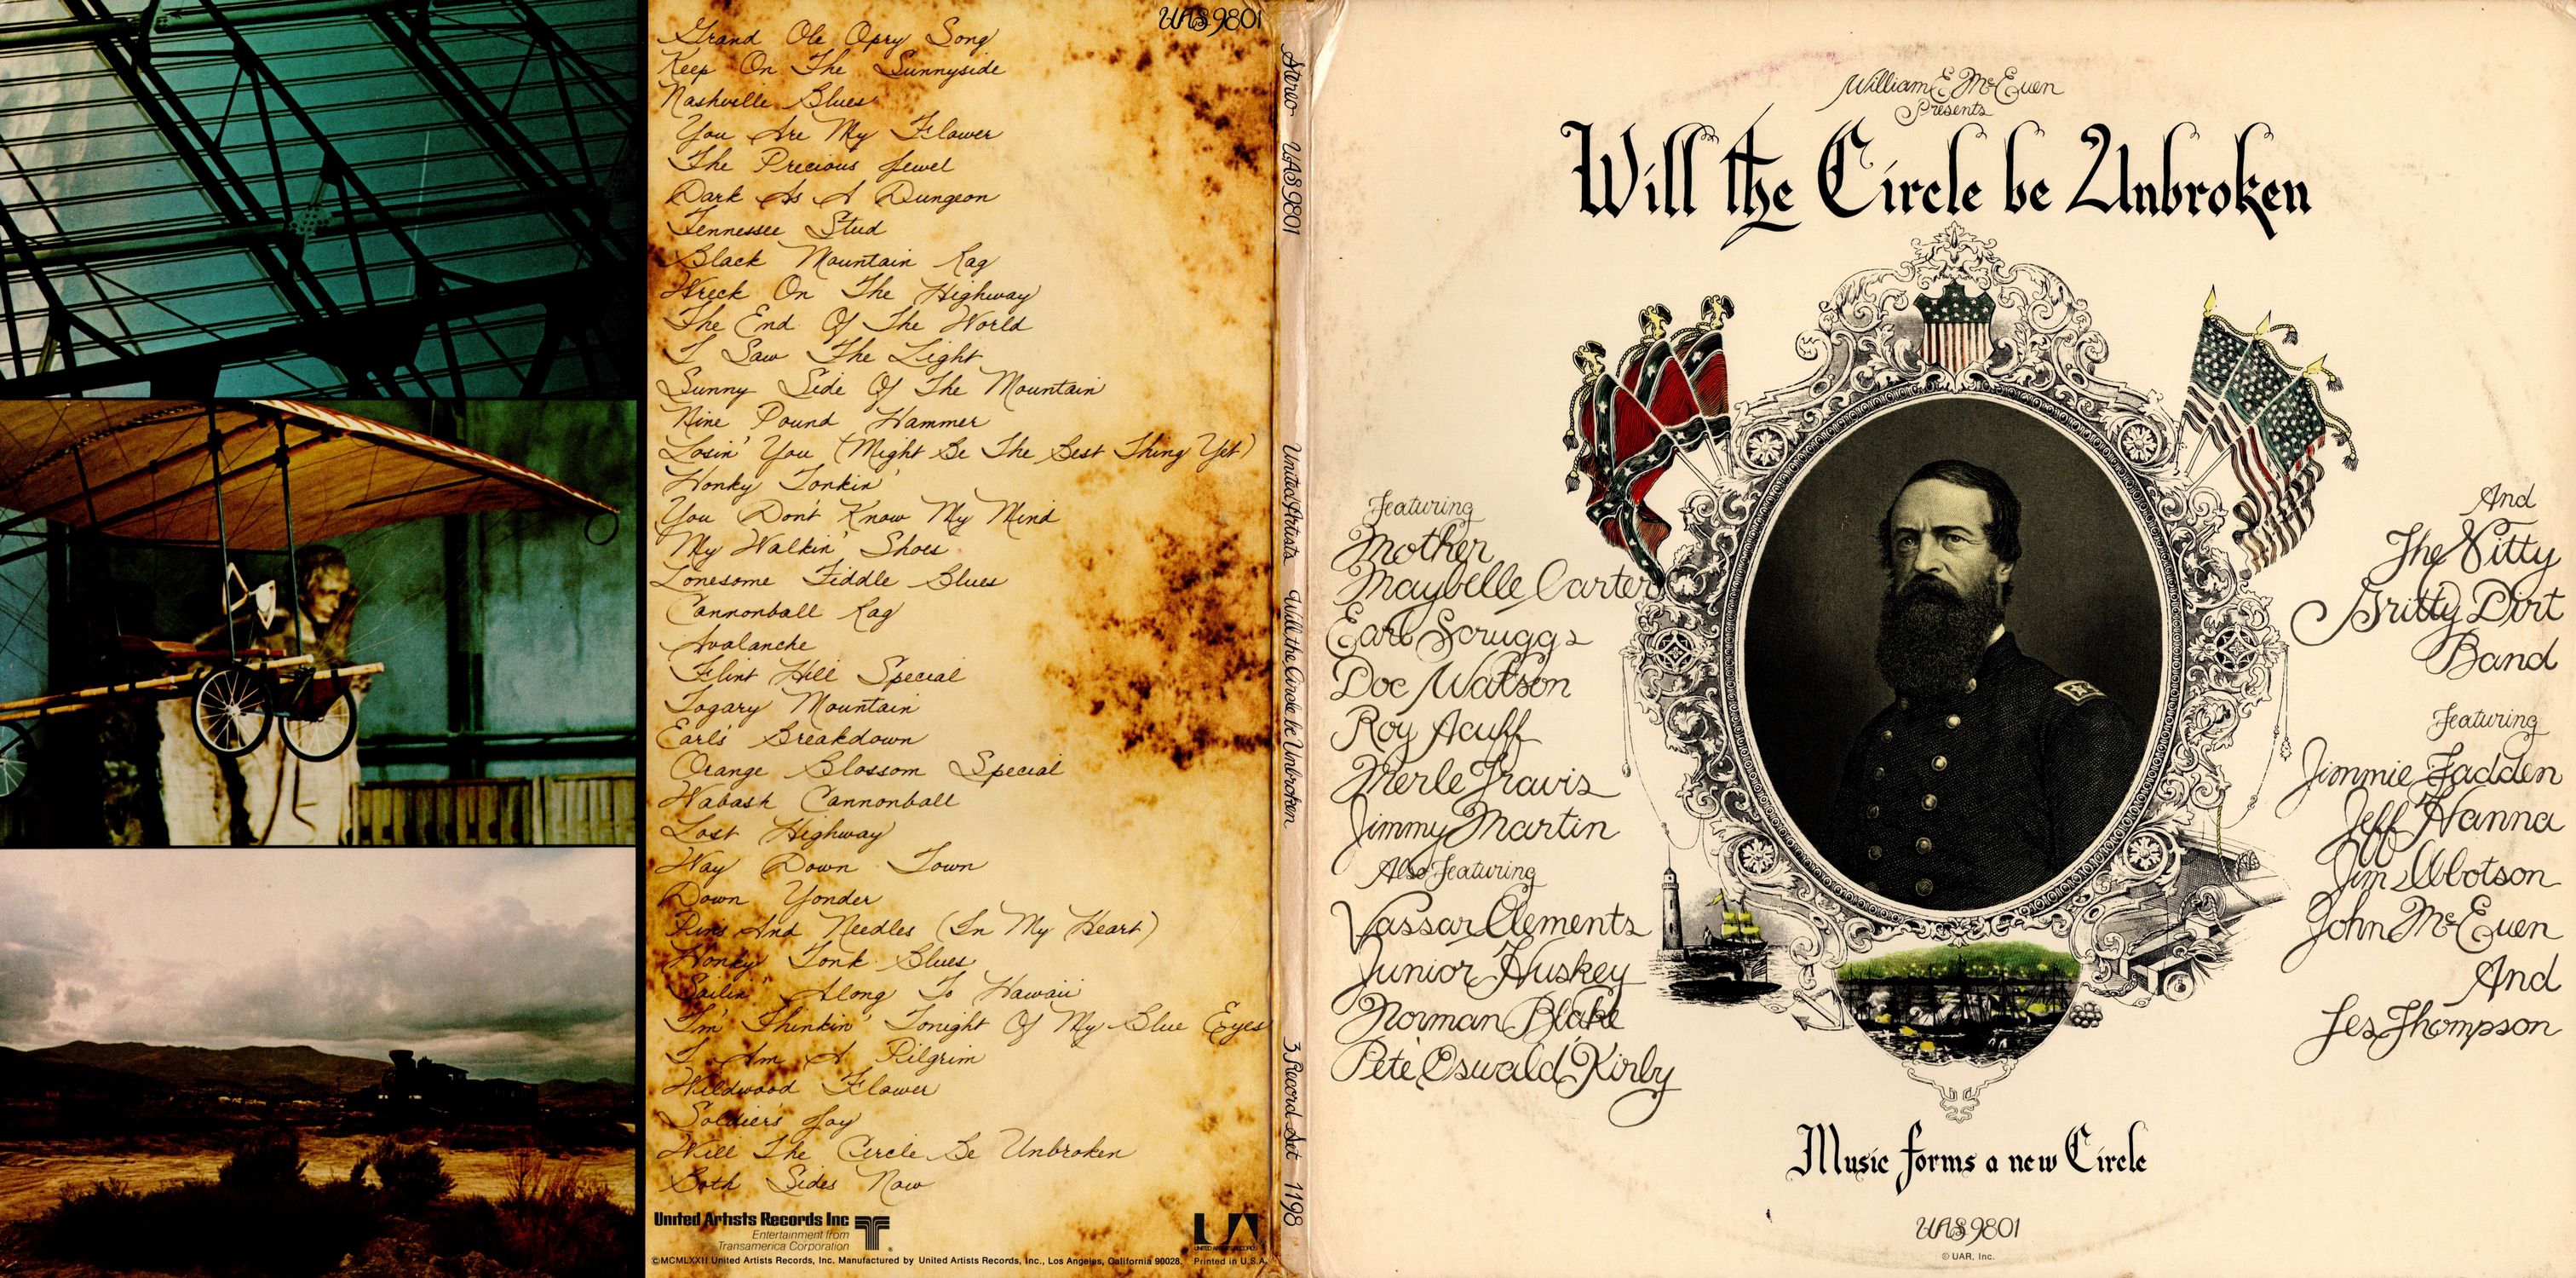 UAS 9801
Grand Ole Opry Song
Keep On The Sunnyside
Nashville Blues
You Are My Flower
The Precious Jewel
Dark As A Dungeon
Tennessee Stud
Black Mountain Rag
Wreck On The Highway
The End Of The World
I Saw The Light
Sunny Side Of The Mountain
Nine Pound Hammer
Losin' You (Might Be The Best Thing Yet)
Honky Tonkin'
You Don't Know My Mind
My Walkin' Shoes
Lonesome Fiddle Blues
Cannonball Rag
Avalanche
Flint Hill Special
Togary Mountain
Earl's Breakdown
Orange Blossom Special
Wabash Cannonball
Lost Highway
Way Down Town
Down Yonder
Pins And Needles (In My Heart)
Honky Tonk Blues
Sailin' Along To Hawaii
I'm Thinkin' Tonight Of My Blue Eyes
I Am A Pilgrim
Wildwood Flower
Soldier's Joy
Will The Circle Be Unbroken
Both Sides Now
United Artists Records Inc
Entertainment from
Transamerica Corporation
UA
UNITED ARTISTS RECORDS
©MCMLXXII United Artists Records, Inc. Manufactured by United Artists Records, Inc., Los Angeles, California 90028. Printed in U.S.A.
Stereo UAS 9801 United Artists Will the Circle be Unbroken 3 Record Set 1198
William E. McEuen
Presents
Will the Circle be Unbroken
Featuring
Mother
Maybelle Carter
Earl Scruggs
Doc Watson
Roy Acuff
Merle Travis
Jimmy Martin
Also Featuring
Vassar Clements
Junior Huskey
Norman Blake
Pete 'Oswald' Kirby
And
The Nitty
Gritty Dirt
Band
Featuring
Jimmie Fadden
Jeff Hanna
Jim Ibbotson
John McEuen
And
Les Thompson
Music forms a new Circle
UAS 9801
© UAR, Inc.